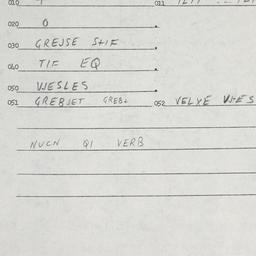 010
011
020 0
030 GREJSE STIF
040 TIF EQ
050 WESLES
051 GREBJET GREBT 052 VELYE WIES
NUCN QI VERB